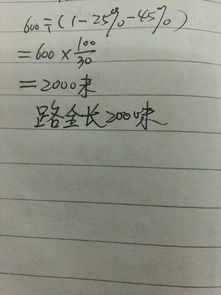 600÷(1-25%-45%)
=600×100/30
=2000米
路全长2000米